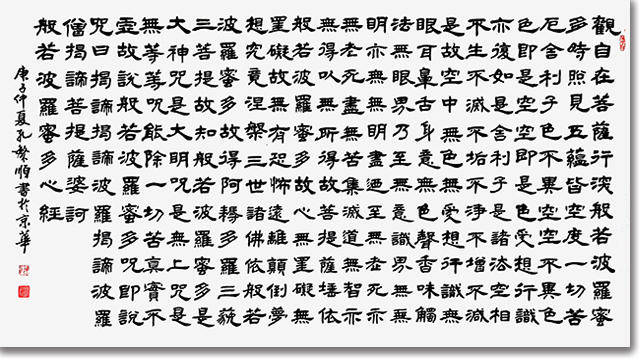 觀自在菩薩行深般若波羅蜜
多時照見五蘊皆空度一切苦
厄舍利子色不異空空不異色
色即是空空即是色受想行識
亦復如是舍利子是諸法空相
不生不滅不垢不淨不增不減
是故空中無色無受想行識無
眼耳鼻舌身意無色聲香味觸
法無眼界乃至無意識界無無
明亦無無明盡迺至無老死亦
無老死盡無苦集滅道無智亦
無得以無所得故菩提薩埵依
般若波羅蜜多故心無罣礙無
罣礙故無有恐怖遠離顛倒夢
想究竟涅槃三世諸佛依般若
波羅蜜多故得阿耨多羅三藐
三菩提故知般若波羅蜜多是
大神咒是大明咒是無上咒是
無等等咒能除一切苦真實不
虛故說般若波羅蜜多咒即說
咒曰揭諦揭諦波羅揭諦波羅
僧揭諦菩提薩婆訶
般若波羅蜜多心經
庚子仲夏孔繁順書於京華